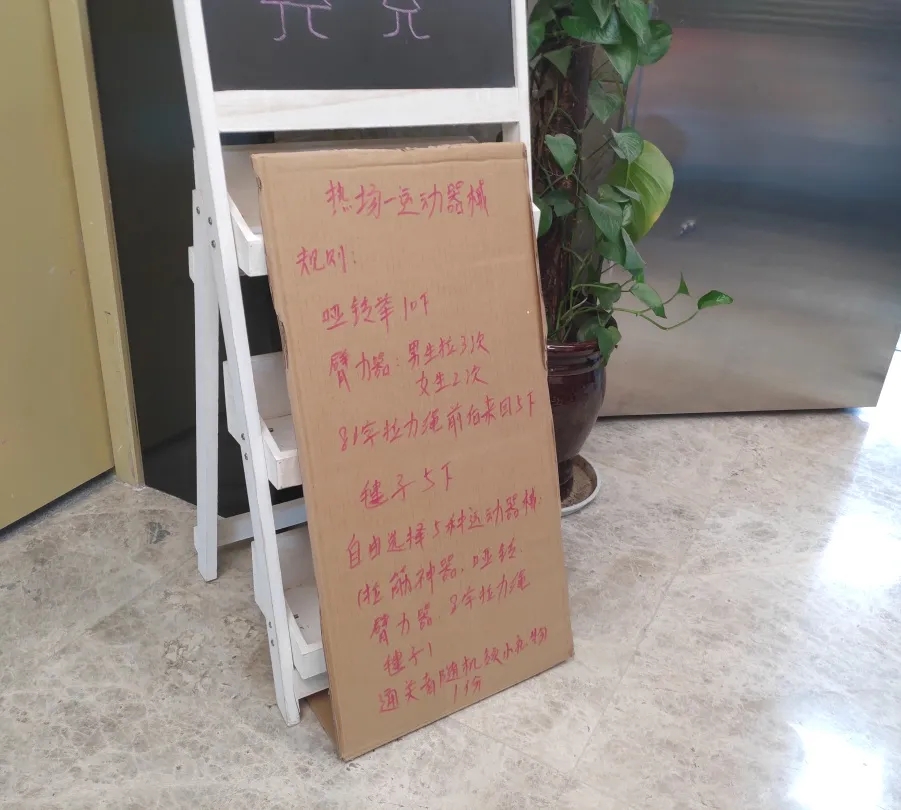 热场一运动器械
规则:
哑铃举10下
臂力器:男生拉3次
女生2次
8字拉力绳前后来回5下
毽子5下
自由选择5种运动器械
(拉筋神器、哑铃、
臂力器、8字拉力绳
毽子)
通关者随机领小礼物
1份